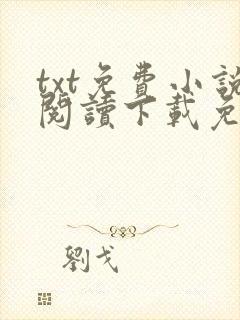 txt免費小說
閱讀下載免
劉戈